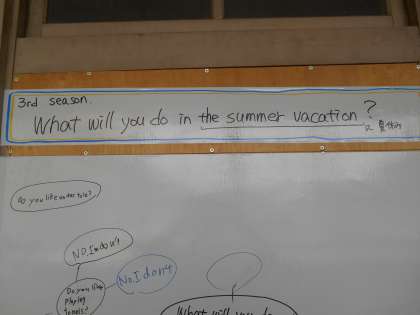 3rd season.
What will you do in the summer vacation?
Do you like
NO, I don't
No, I don't
Do you like
playing
What will you do